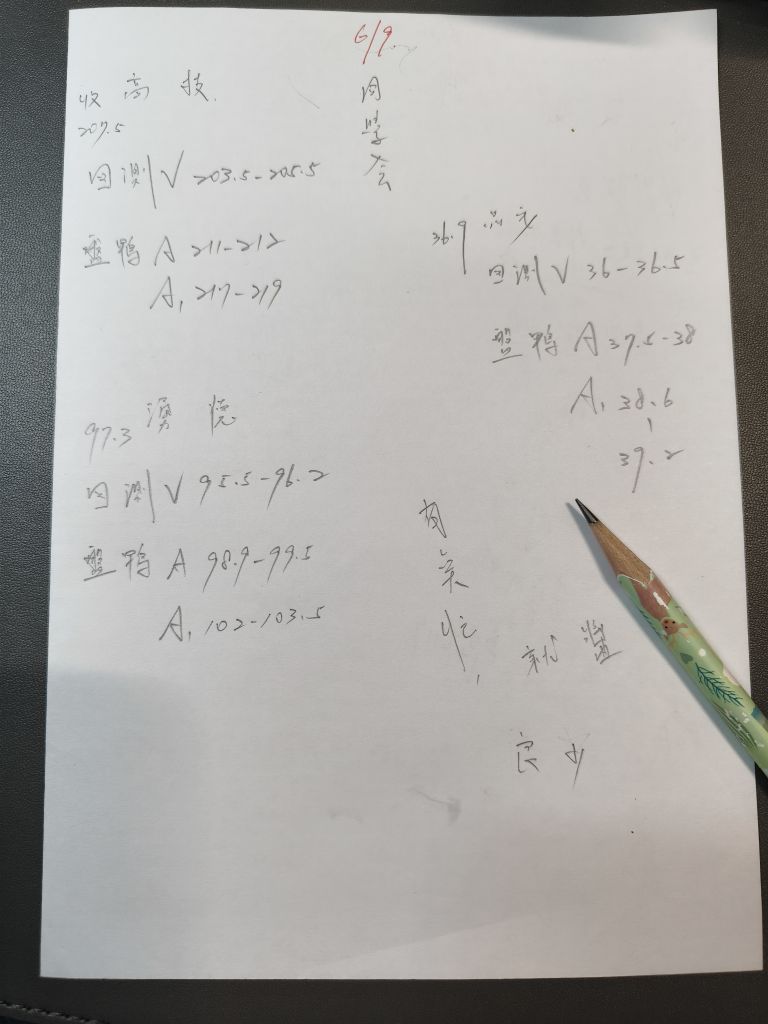 6/9
同學会
收 高 技
207.5
回測 V 203.5-205.5
盤 鴨 A 211-212
A, 217-219
36.9 品安
回測 V 36-36.5
盤 鴨 A 37.5-38
A, 38.6
|
39.2
97.3 湧 德
回測 V 95.5-96.2
盤 鴨 A 98.9-99.5
A, 102-103.5
有
忙,
就